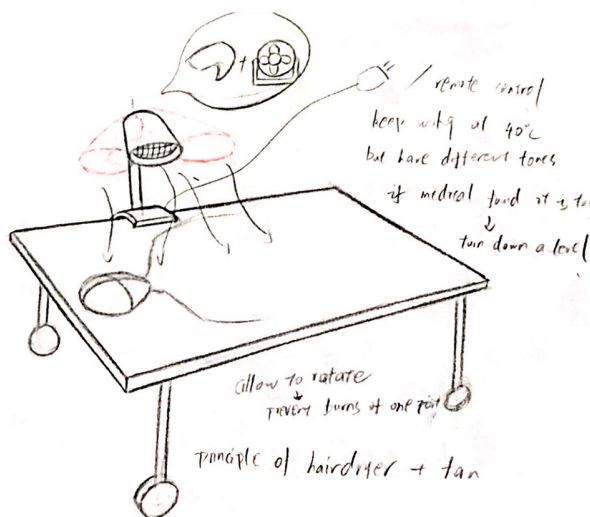 / remote control
keep at 40°c
but have different tones
if medical found it is to
turn down a level
allow to rotate
prevent burns of one part
principle of hairdryer + fan